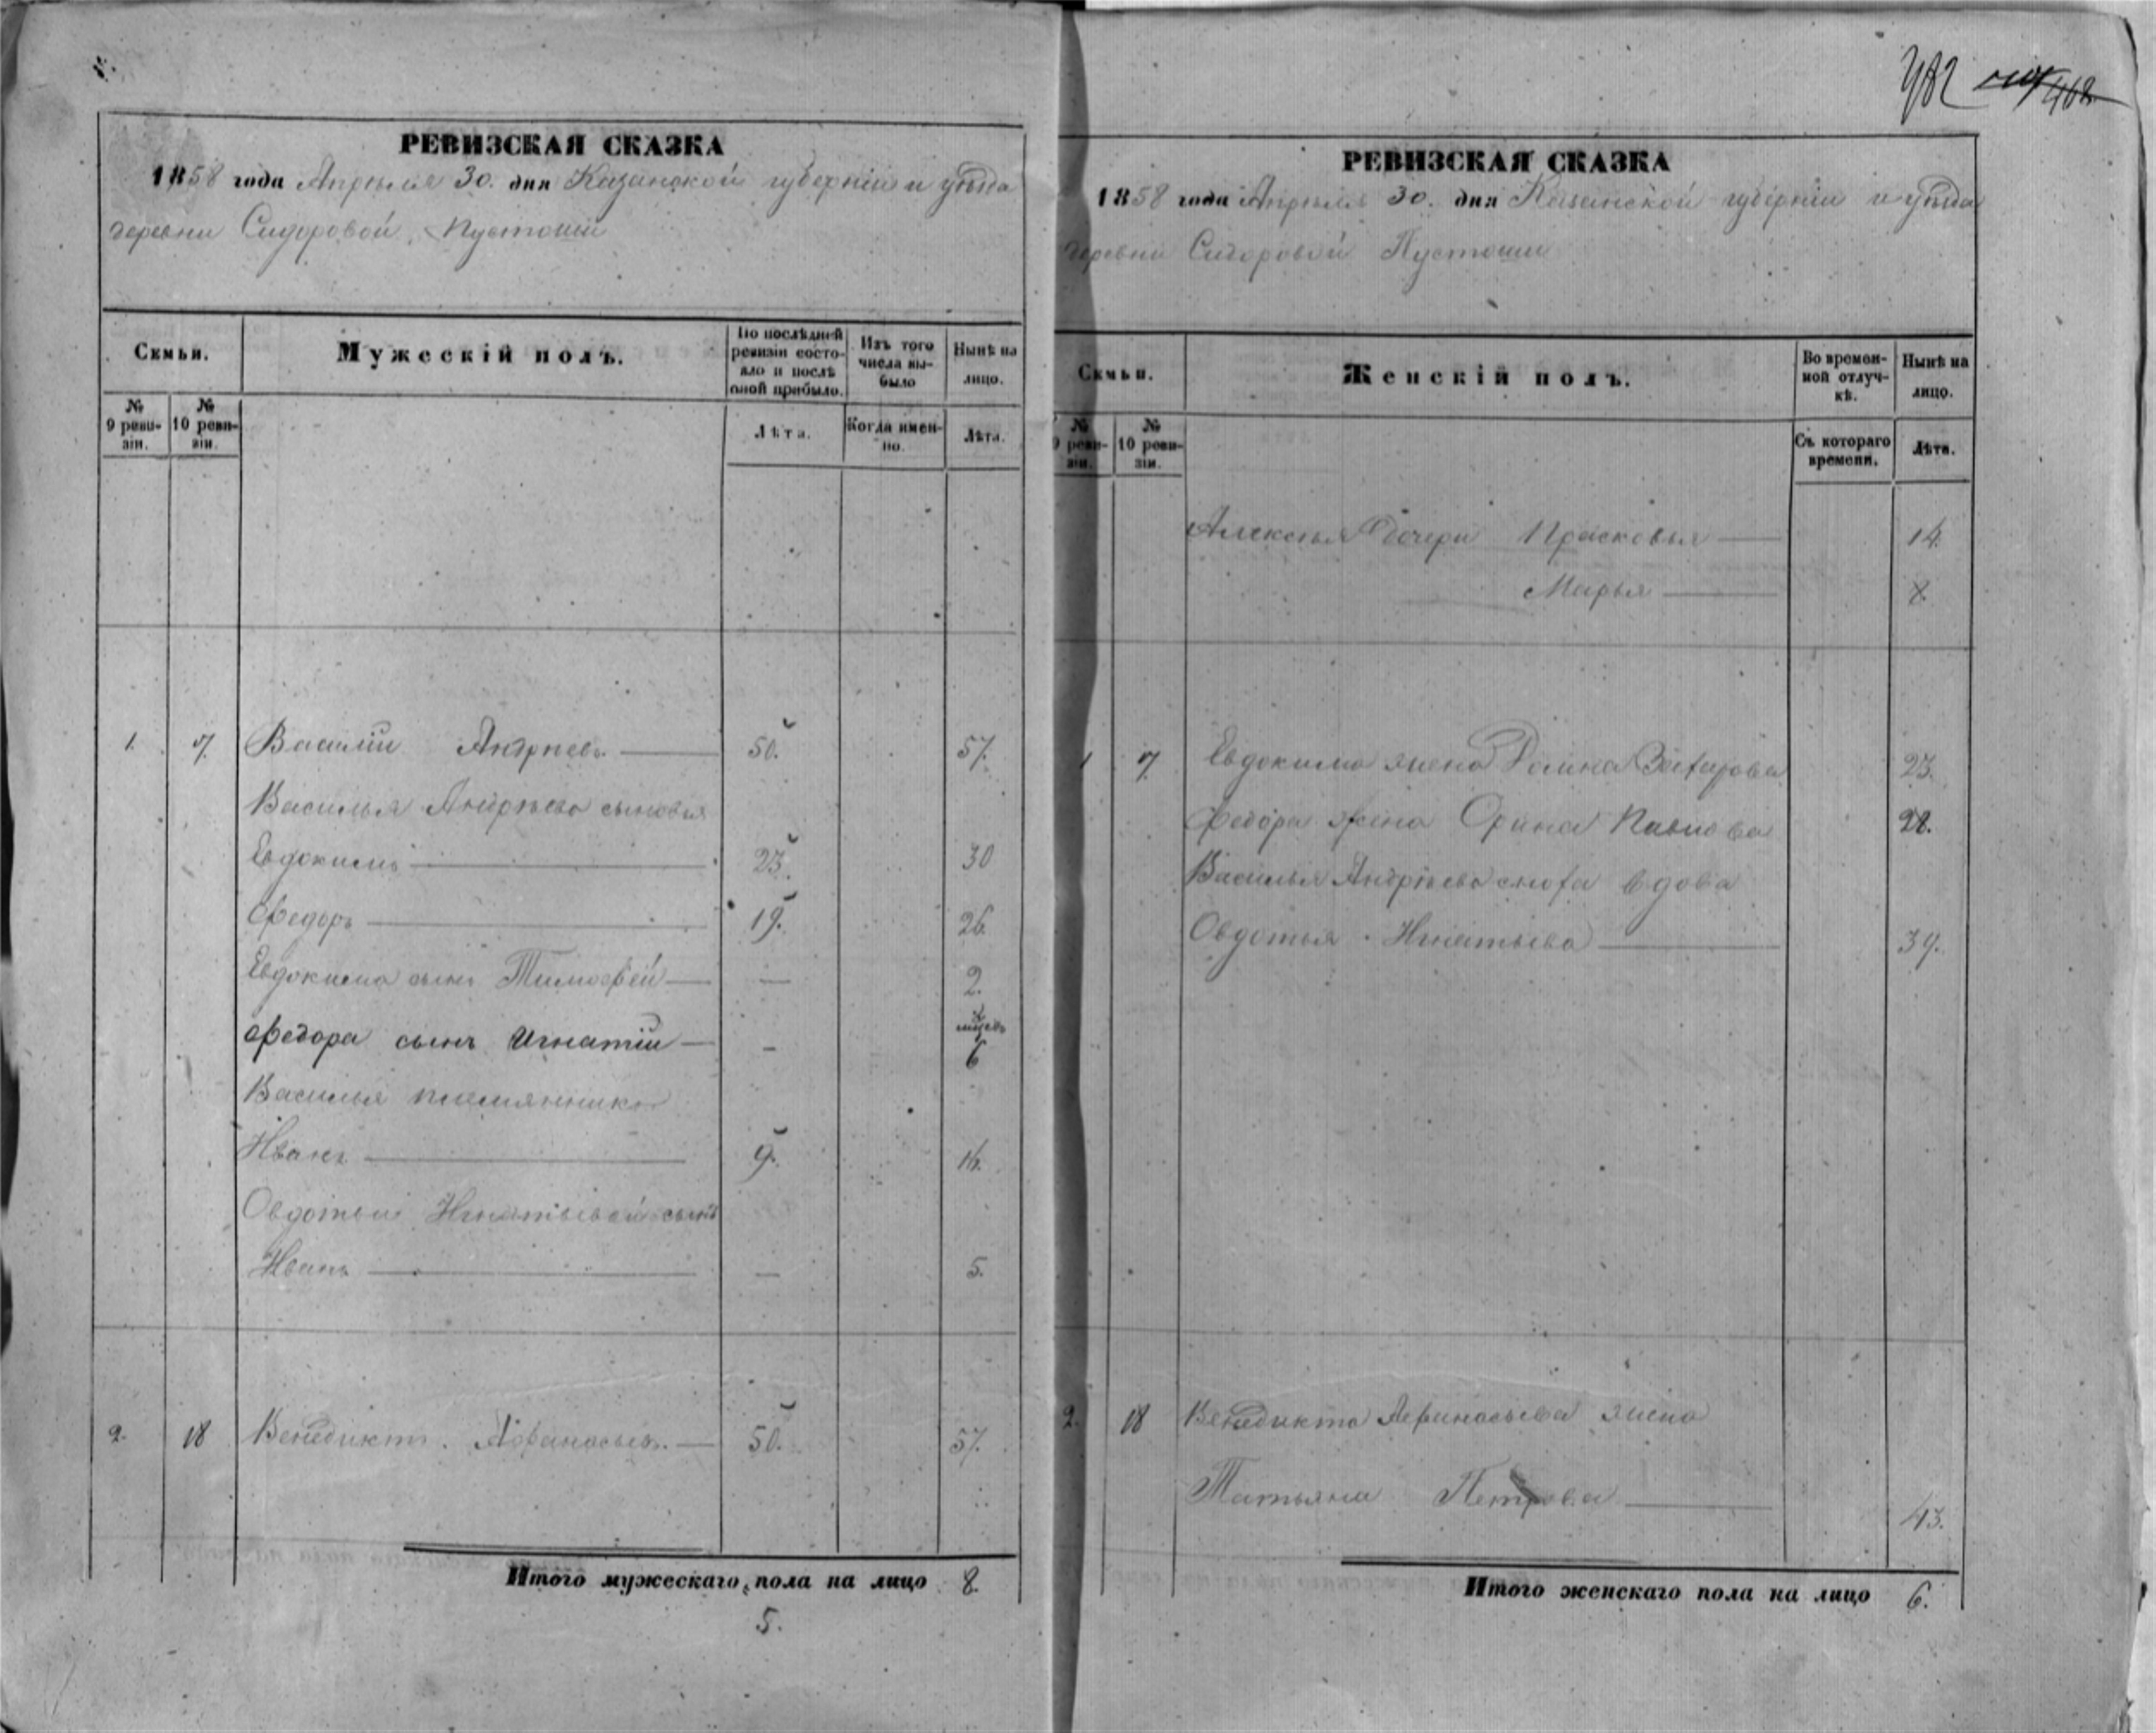 РЕВИЗСКАЯ СКАЗКА
1858 года Апреля 30. дня Казанской губерніи и уѣзда
деревни Сидоровой Пустоши
Семьи.
Мужескій полъ.
По послѣдней ревизіи состояло и послѣ оной прибыло.
Изъ того числа выбыло
Нынѣ на лицо.
№ 9 ревизіи.
№ 10 ревизіи.
Лѣта.
Когда именно.
Лѣта.
1. 7. Василій Андреевъ 50. 57.
Василья Андреева сыновья
Евдокимъ 23. 30
Федоръ 19. 26.
Евдокима сынъ Тимофей — 2.
Федора сынъ Игнатій — 6
Василья племянникъ
Иванъ 9. 16.
Овдотьи Игнатьевой сынъ
Иванъ — 5.
2. 18 Венедиктъ Афанасьевъ. 50. 57.
Итого мужескаго пола на лицо 8.
5.
РЕВИЗСКАЯ СКАЗКА
1858 года Апреля 30. дня Казанской губерніи и уѣзда
деревни Сидоровой Пустоши
Семьи.
Женскій полъ.
Во временной отлучкѣ.
Нынѣ на лицо.
№ 9 ревизіи.
№ 10 ревизіи.
Съ котораго времени.
Лѣта.
Алексея дочери Прасковья 14.
Марья 8.
1 7 Евдокима жена Захарова 23.
Федора жена Орина Павлова 28.
Василья Андреева сноха вдова
Овдотья Игнатьева 39.
2. 18 Венедикта Афанасьева жена
Татьяна Петрова 43.
Итого женскаго пола на лицо 6.